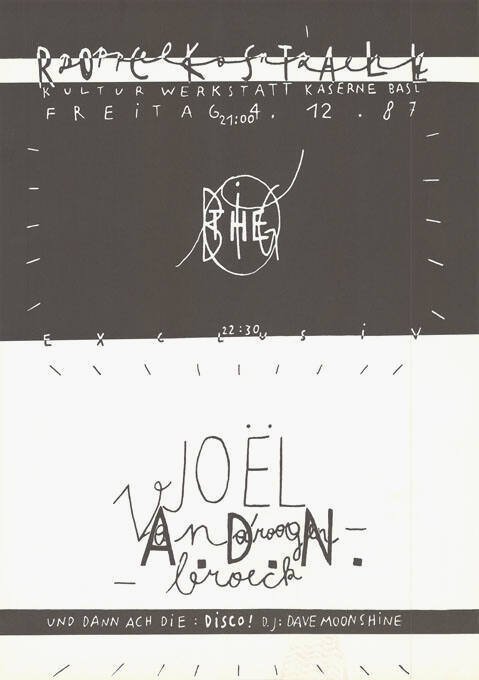 KULTUR WERKSTATT KASERNE BASL
FREiTAG 4. 12. 87
21:00
THE
BiG
22:30
EXCLUSiV
JOËL
Van droogen-
A.D.N.
- broeck
UND DANN ACH DiE : DiSCO! D.J: DAVE MOONSHiNE